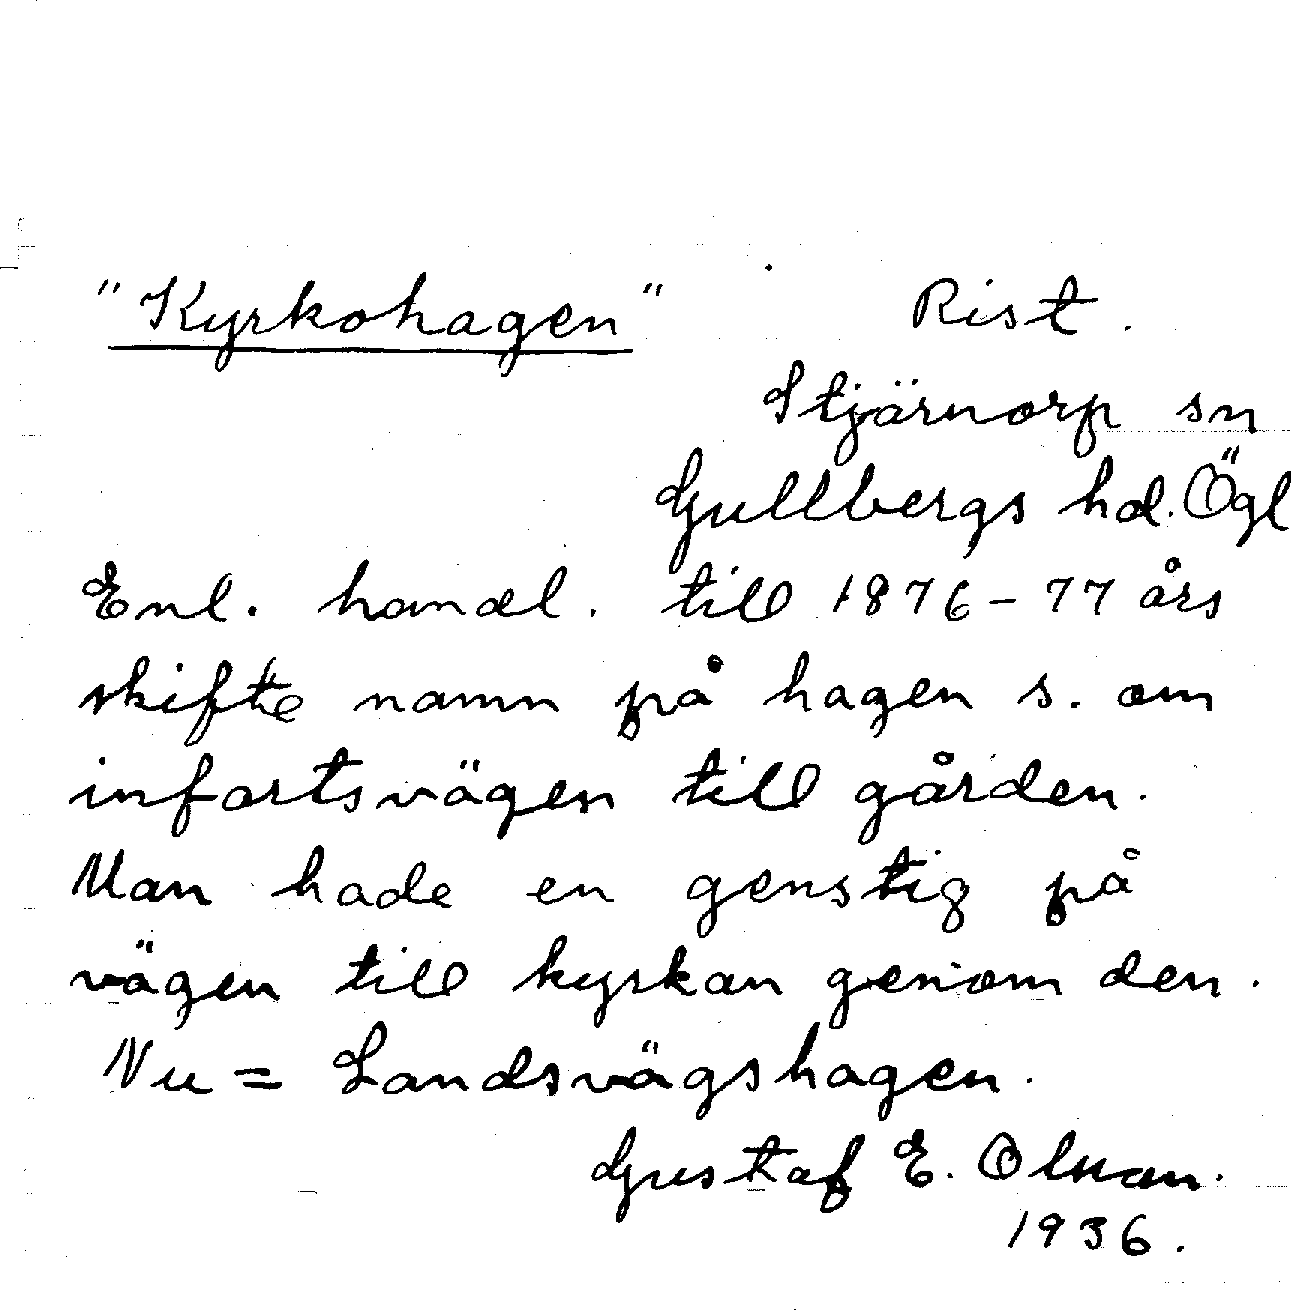 "Kyrkohagen" Rist.
Stjärnorp sn
Gullbergs hd. Ögl
Enl. handl. till 1876-77 års
skifte namn på hagen s. om
infartsvägen till gården.
Man hade en genstig på
vägen till kyrkan genom den.
Nu = Landsvägshagen.
Gustaf E.
1936.